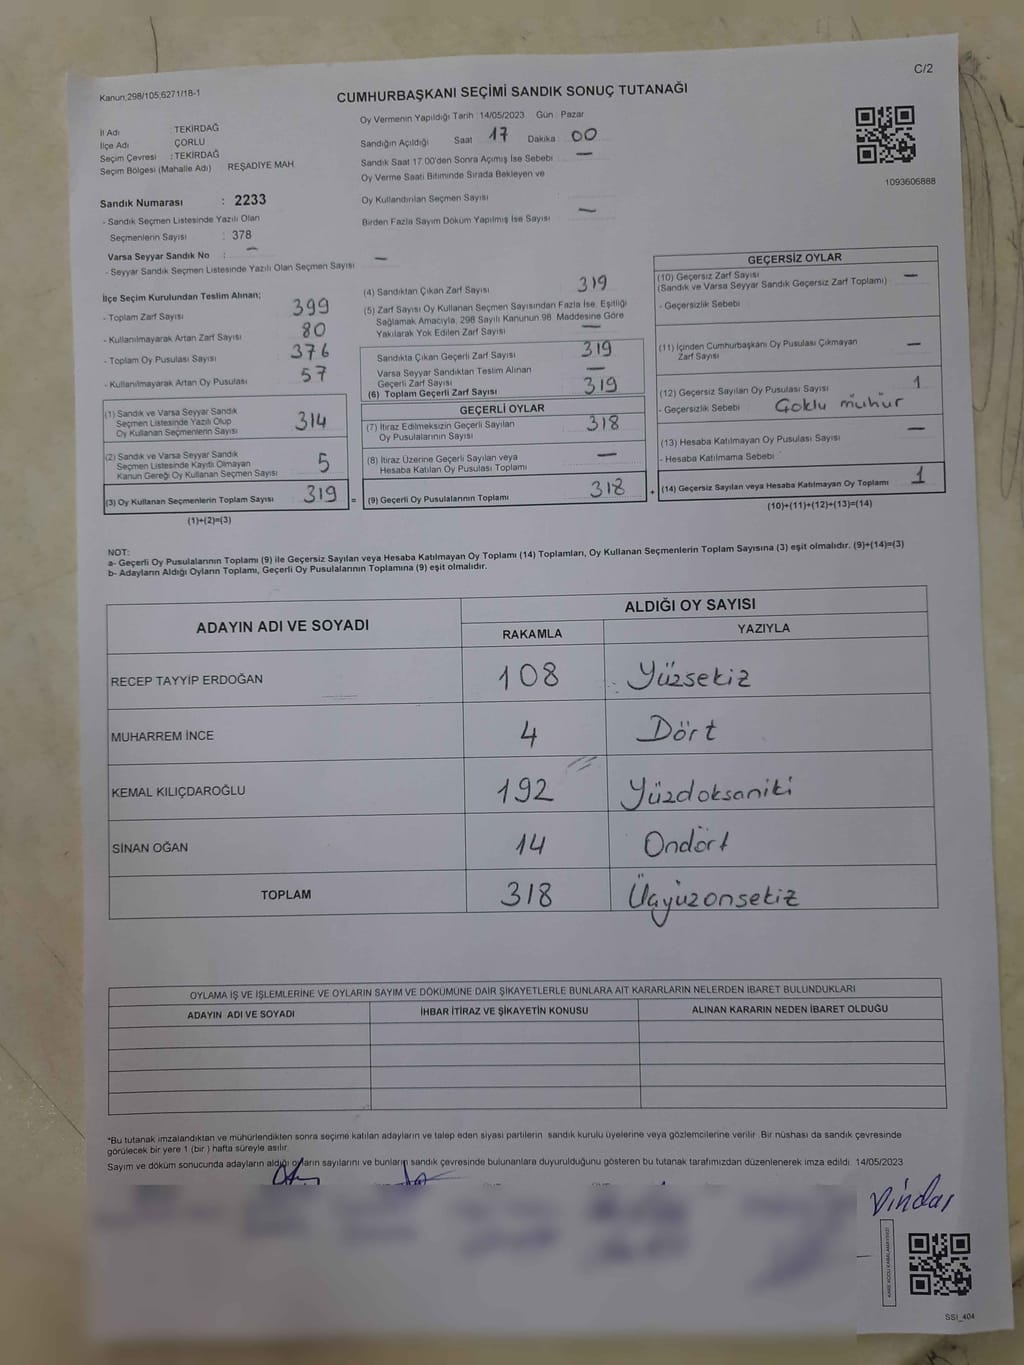 C/2
Kanun;298/105,6271/18-1
CUMHURBAŞKANI SEÇİMİ SANDIK SONUÇ TUTANAĞI
İl Adı : TEKİRDAĞ
İlçe Adı ÇORLU
Seçim Çevresi : TEKİRDAĞ
Seçim Bölgesi (Mahalle Adı) REŞADİYE MAH
Sandık Numarası : 2233
- Sandık Seçmen Listesinde Yazılı Olan
Seçmenlerin Sayısı : 378
Varsa Seyyar Sandık No : —
- Seyyar Sandık Seçmen Listesinde Yazılı Olan Seçmen Sayısı —
Oy Vermenin Yapıldığı Tarih : 14/05/2023 Gün : Pazar
Sandığın Açıldığı Saat 17 Dakika 00
Sandık Saat 17.00'den Sonra Açımış İse Sebebi —
Oy Verme Saati Bitiminde Sırada Bekleyen ve
Oy Kullandırılan Seçmen Sayısı
Birden Fazla Sayım Döküm Yapılmış İse Sayısı —
1093606888
İlçe Seçim Kurulundan Teslim Alınan;
- Toplam Zarf Sayısı 399
- Kullanılmayarak Artan Zarf Sayısı 80
- Toplam Oy Pusulası Sayısı 376
- Kullanılmayarak Artan Oy Pusulası 57
(1) Sandık ve Varsa Seyyar Sandık
Seçmen Listesinde Yazılı Olup
Oy Kullanan Seçmenlerin Sayısı 314
(2) Sandık ve Varsa Seyyar Sandık
Seçmen Listesinde Kayıtlı Olmayan
Kanun Gereği Oy Kullanan Seçmen Sayısı 5
(3) Oy Kullanan Seçmenlerin Toplam Sayısı 319 =
(1)+(2)=(3)
(4) Sandıktan Çıkan Zarf Sayısı 319
(5) Zarf Sayısı Oy Kullanan Seçmen Sayısından Fazla İse, Eşitliği
Sağlamak Amacıyla, 298 Sayılı Kanunun 98. Maddesine Göre
Yakılarak Yok Edilen Zarf Sayısı —
Sandıkta Çıkan Geçerli Zarf Sayısı 319
Varsa Seyyar Sandıktan Teslim Alınan
Geçerli Zarf Sayısı —
(6) Toplam Geçerli Zarf Sayısı 319
GEÇERLİ OYLAR
(7) İtiraz Edilmeksizin Geçerli Sayılan
Oy Pusulalarının Sayısı 318
(8) İtiraz Üzerine Geçerli Sayılan veya
Hesaba Katılan Oy Pusulası Toplamı —
(9) Geçerli Oy Pusulalarının Toplamı 318 +
GEÇERSİZ OYLAR
(10) Geçersiz Zarf Sayısı —
(Sandık ve Varsa Seyyar Sandık Geçersiz Zarf Toplamı)
- Geçersizlik Sebebi
(11) İçinden Cumhurbaşkanı Oy Pusulası Çıkmayan
Zarf Sayısı —
(12) Geçersiz Sayılan Oy Pusulası Sayısı 1
- Geçersizlik Sebebi Çoklu mühür
(13) Hesaba Katılmayan Oy Pusulası Sayısı —
- Hesaba Katılmama Sebebi
(14) Geçersiz Sayılan veya Hesaba Katılmayan Oy Toplamı 1
(10)+(11)+(12)+(13)=(14)
NOT:
a- Geçerli Oy Pusulalarının Toplamı (9) ile Geçersiz Sayılan veya Hesaba Katılmayan Oy Toplamı (14) Toplamları, Oy Kullanan Seçmenlerin Toplam Sayısına (3) eşit olmalıdır. (9)+(14)=(3)
b- Adayların Aldığı Oyların Toplamı, Geçerli Oy Pusulalarının Toplamına (9) eşit olmalıdır.
ADAYIN ADI VE SOYADI
ALDIĞI OY SAYISI
RAKAMLA YAZIYLA
RECEP TAYYİP ERDOĞAN 108 Yüzsekiz
MUHARREM İNCE 4 Dört
KEMAL KILIÇDAROĞLU 192 Yüzdoksaniki
SİNAN OĞAN 14 Ondört
TOPLAM 318 Üçyüzonsekiz
OYLAMA İŞ VE İŞLEMLERİNE VE OYLARIN SAYIM VE DÖKÜMÜNE DAİR ŞİKAYETLERLE BUNLARA AİT KARARLARIN NELERDEN İBARET BULUNDUKLARI
ADAYIN ADI VE SOYADI İHBAR İTİRAZ VE ŞİKAYETİN KONUSU ALINAN KARARIN NEDEN İBARET OLDUĞU
*Bu tutanak imzalandıktan ve mühürlendikten sonra seçime katılan adayların ve talep eden siyasi partilerin sandık kurulu üyelerine veya gözlemcilerine verilir. Bir nüshası da sandık çevresinde
görülecek bir yere 1 (bir ) hafta süreyle asılır.
Sayım ve döküm sonucunda adayların aldığı oyların sayılarını ve bunların sandık çevresinde bulunanlara duyurulduğunu gösteren bu tutanak tarafımızdan düzenlenerek imza edildi. 14/05/2023
SSI_404